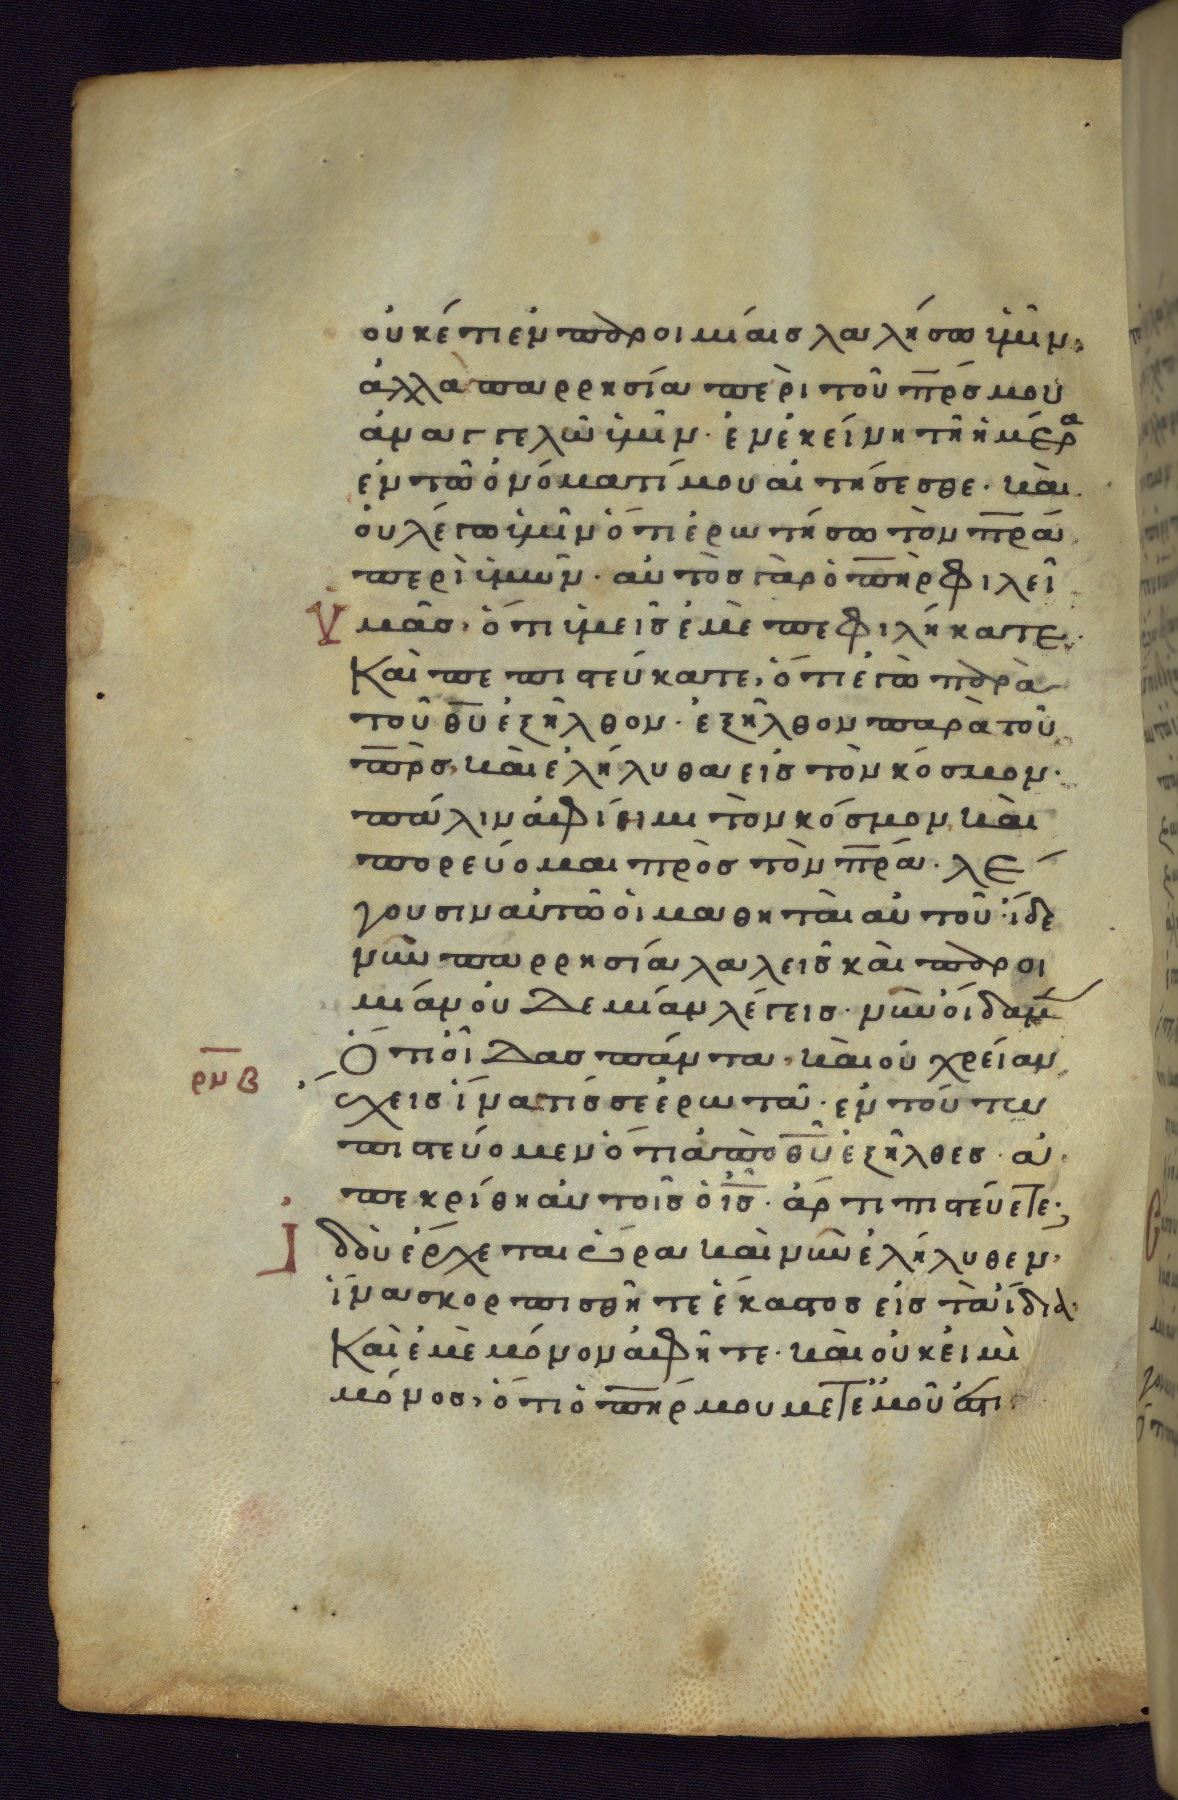 οὐκέτι ἐν παροιμίαις λαλήσω ὑμῖν,
ἀλλα παρρησία περὶ τοῦ π̅ρ̅ς̅ μου
ἀναγγελῶ ὑμῖν· ἐν ἐκείνη τῆ ἡμέρα
ἐν τῶ ὀνόματί μου αἰτήσεσθε· καὶ
οὐ λέγω ὑμῖν ὅτι ἐρωτήσω τὸν π̅ρ̅α̅
περὶ ὑμῶν· αὐτὸς γὰρ ὁ π̅η̅ρ̅ φιλεῖ
ὑμᾶς, ὅτι ὑμεῖς ἐμὲ πεφιλήκατε·
Καὶ πεπιστεύκατε, ὅτι ἐγὼ παρὰ
τοῦ θ̅υ̅ ἐξῆλθον· ἐξῆλθον παρὰ τοῦ
π̅ρ̅ς̅, καὶ ἐλήλυθα εἰς τὸν κόσμον·
πάλιν ἀφίημι τὸν κόσμον καὶ
πορεύομαι πρὸς τὸν π̅ρ̅α̅· λέ
γουσιν αὐτῶ οἱ μαθηταὶ αὐτοῦ· ἴδε
νῦν παρρησία λαλεῖς καὶ παροι
μίαν οὐδεμίαν λέγεις· νῦν οἴδαμεν
Ὅτι οἶδας πάντα, καὶ οὐ χρείαν
ρ̅ν̅β̅
ἔχεις ἵνα τίς σε ἐρωτᾶ· ἐν τούτω
πιστεύομεν ὅτι ἀπὸ θ̅υ̅ ἐξῆλθες· ἀ
πεκρίθη αὐτοῖς ὁ ι̅ς̅· ἄρτι πιστεύετε;
Ἰδοὺ ἔρχεται ὥρα καὶ νῦν ἐλήλυθεν,
ἵνα σκορπισθῆτε ἕκαστος εἰς τὰ ἴδια,
Καὶ ἐμὲ μόνον ἀφῆτε· καὶ οὐκ εἰμὶ
μόνος, ὅτι ὁ π̅η̅ρ̅ μου μετ' ἐμοῦ ἐστι